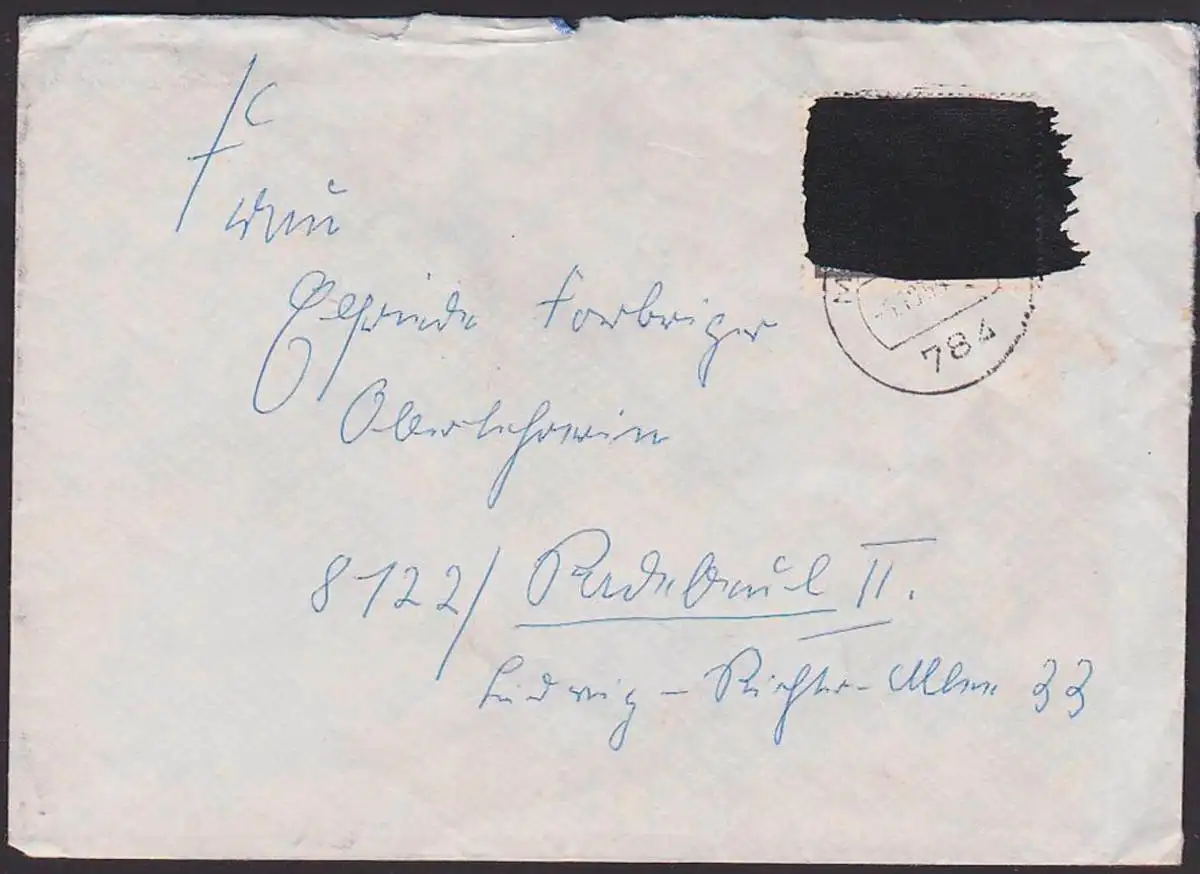 Frau
Elfriede Forbriger
Oberlehrerin
8122/ Radebeul II.
Ludwig-Richter-Allee 33
784